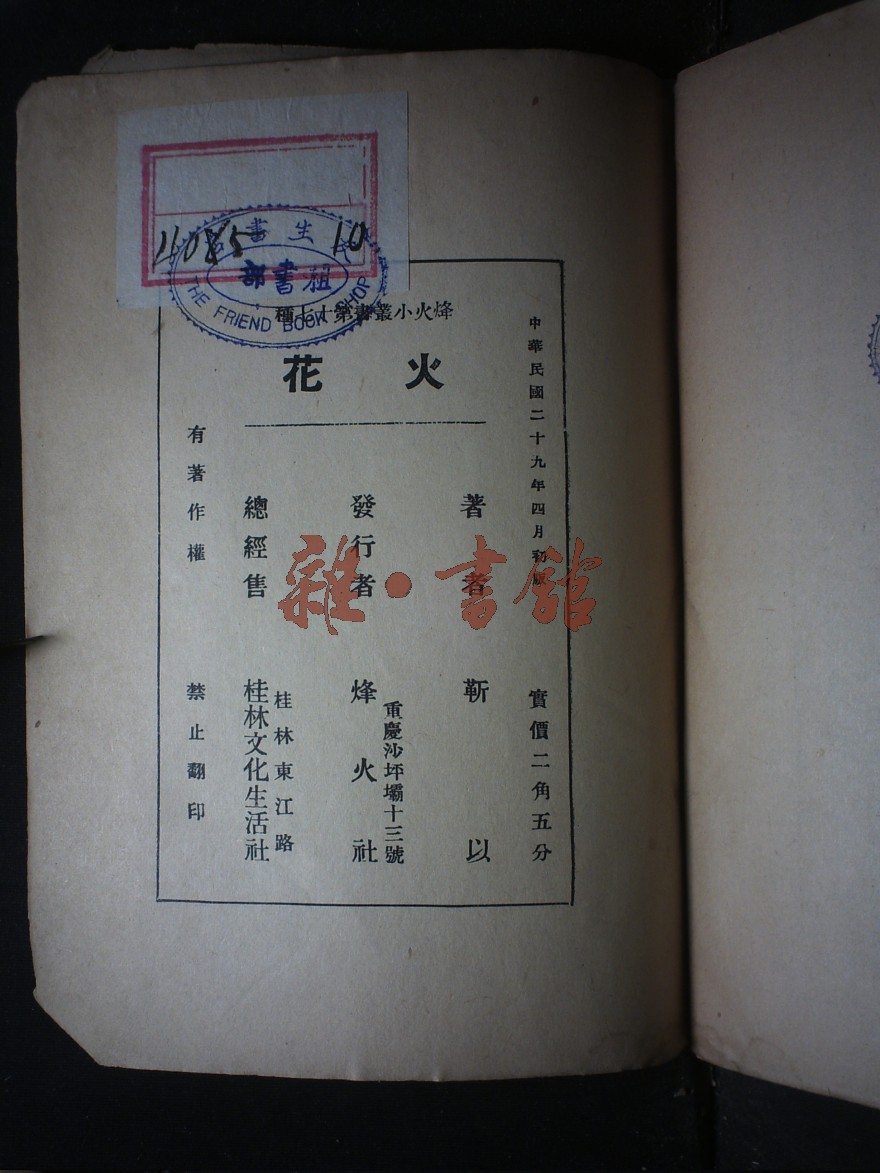 4085 10
書生
租書部
THE FRIEND BOOK SHOP
烽火小叢書第十七種
火花
中華民國二十九年四月初版
實價二角五分
著者 靳以
發行者 烽火社
重慶沙坪壩十三號
總經售 桂林文化生活社
桂林東江路
有著作權 禁止翻印
雜·書館